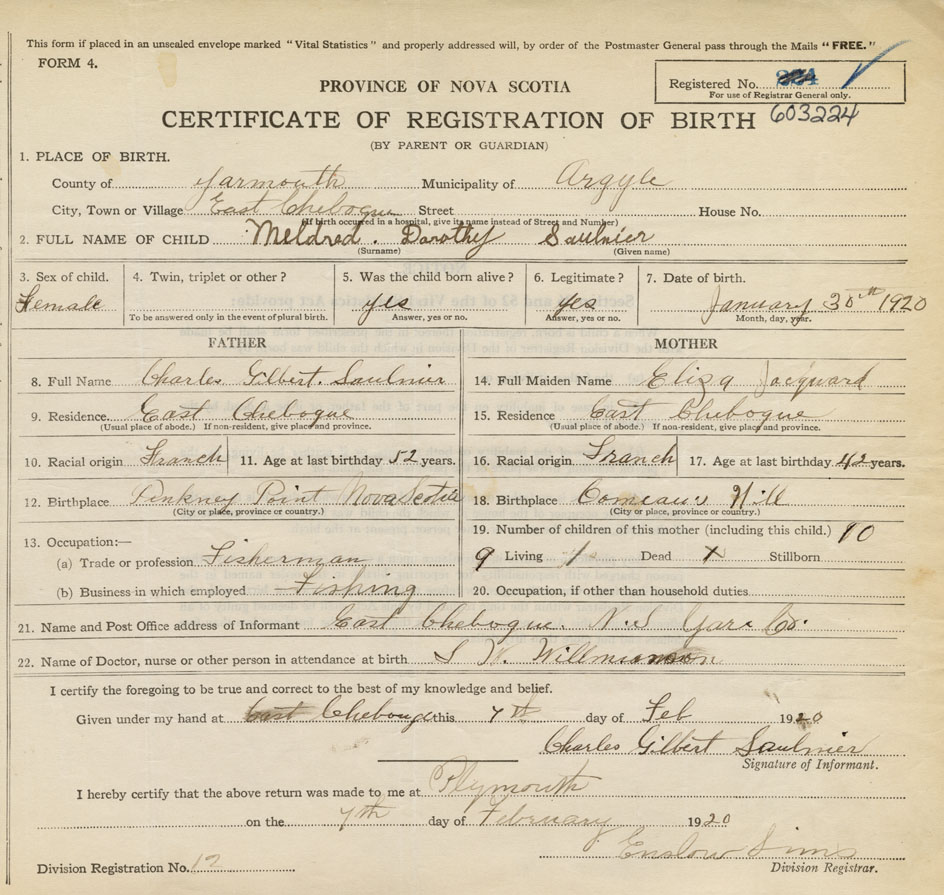 This form if placed in an unsealed envelope marked "Vital Statistics" and properly addressed will, by order of the Postmaster General pass through the Mails "FREE."
FORM 4.
PROVINCE OF NOVA SCOTIA
Registered No.
For use of Registrar General only.
603224
CERTIFICATE OF REGISTRATION OF BIRTH
(BY PARENT OR GUARDIAN)
1. PLACE OF BIRTH.
County of Yarmouth Municipality of Argyle
City, Town or Village East Chebogue Street House No.
(If birth occurred in a hospital, give its name instead of Street and Number)
2. FULL NAME OF CHILD Meldred. Dorothy Saulnier
(Surname) (Given name)
3. Sex of child. 4. Twin, triplet or other? 5. Was the child born alive? 6. Legitimate? 7. Date of birth.
Female yes yes January 30th 1920
To be answered only in the event of plural birth. Answer, yes or no. Answer, yes or no. Month, day, year.
FATHER MOTHER
8. Full Name Charles Gilbert. Saulnier 14. Full Maiden Name Eliza Jacquard
9. Residence. East Chebogue 15. Residence East Chebogue
(Usual place of abode.) If non-resident, give place and province. (Usual place of abode.) If non-resident, give place and province.
10. Racial origin Franch 11. Age at last birthday 52 years. 16. Racial origin Franch 17. Age at last birthday 42 years.
12. Birthplace Pinkney Point Nova Scotia 18. Birthplace Comeaus Hill
(City or place, province or country.) (City or place, province or country.)
19. Number of children of this mother (including this child.) 10
13. Occupation:—
(a) Trade or profession Fisherman 9 Living 1 Dead x Stillborn
(b) Business in which employed Fishing 20. Occupation, if other than household duties
21. Name and Post Office address of Informant East Chebogue. N.S Yar. Co.
22. Name of Doctor, nurse or other person in attendance at birth S W.
I certify the foregoing to be true and correct to the best of my knowledge and belief.
Given under my hand at East Chebougue this 7th day of Feb 1920
Charles Gilbert Saulnier
Signature of Informant.
I hereby certify that the above return was made to me at Plymouth
on the 7th day of February 1920
Enslow Sims
Division Registration No. 12 Division Registrar.